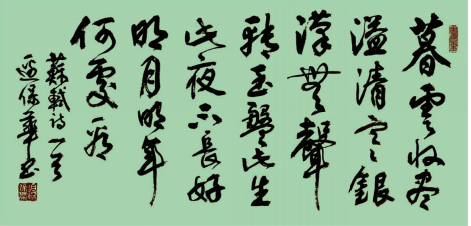 暮雲收盡
溢清寒銀
漢無聲
轉玉盤此生
此夜不長好
明月明年
何處看
蘇軾詩一首
保華书